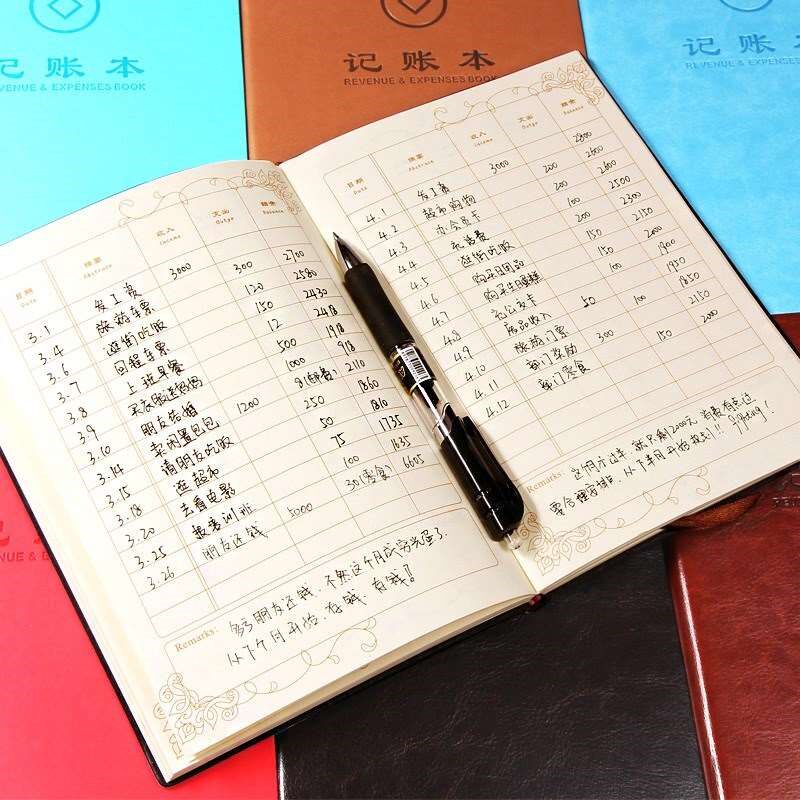 记账本
REVENUE & EXPENSES BOOK
记账本
REVENUE & EXPENSES BOOK
记账本
日期 摘要 收入 支出 余额
Date Abstract Income Outgo Balance
3.1 发工资 3000 300 2700
3.4 旅游车票 120 2580
3.6 逛街吃饭 150 2430
3.7 回程车票 12 2418
3.8 上班早餐 500 1918
3.9 买衣服送妈妈 1000 918
3.10 朋友结婚 1200 8(邮费) 2110
3.14 卖闲置包包 250 1860
3.15 请朋友吃饭 50 1810
3.18 逛超市 75 1735
3.20 去看电影 100 1635
3.25 报培训班 5000 30(零食) 6605
3.26 朋友还钱
Remarks: 多亏朋友还钱,不然这个月成穷光蛋了.
从下个月开始,存钱,存钱!!
日期 摘要 收入 支出 余额
Date Abstract Income Outgo Balance
4.1 发工资 3000 200 2800
4.2 超市购物 200 2600
4.3 办会员卡 2600
4.4 充话费 100 2500
4.5 逛街吃饭 200 2300
4.6 购买日用品 150 2150
4.7 150 2000
4.8 充公交卡 100 1900
4.9 废品收入 50 1950
旅游门票 100 1850
4.11 部门奖励 300 2150
4.12 部门零食 150 2000
Remarks: 这个月才过半,就只剩2000元,消费有点过
要合理安排,从下半月开始 !! fighting!